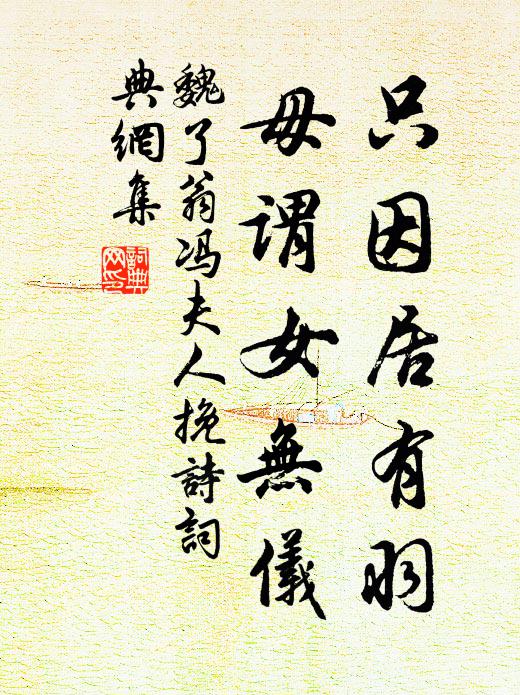 只因居有羽
毋謂女無儀
魏了翁冯夫人挽詩詞
典網集
詞典網印